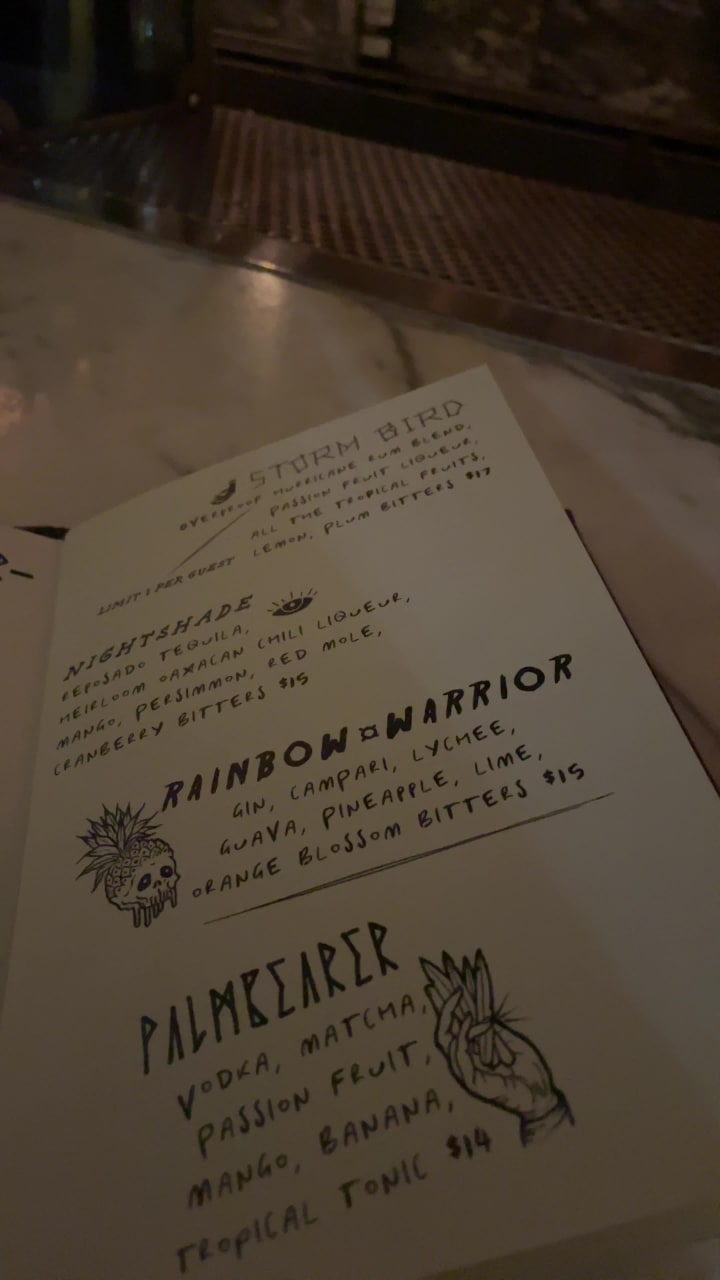 STORM BIRD
OVERPROOF HURRICANE RUM BLEND,
PASSION FRUIT LIQUEUR,
ALL THE TROPICAL FRUITS,
LEMON, PLUM BITTERS $17
LIMIT 1 PER GUEST
NIGHTSHADE
REPOSADO TEQUILA,
HEIRLOOM OAXACAN CHILI LIQUEUR,
MANGO, PERSIMMON, RED MOLE,
CRANBERRY BITTERS $15
RAINBOW WARRIOR
GIN, CAMPARI, LYCHEE,
GUAVA, PINEAPPLE, LIME,
ORANGE BLOSSOM BITTERS $15
PALMBEARER
VODKA, MATCHA,
PASSION FRUIT,
MANGO, BANANA,
TROPICAL TONIC $14